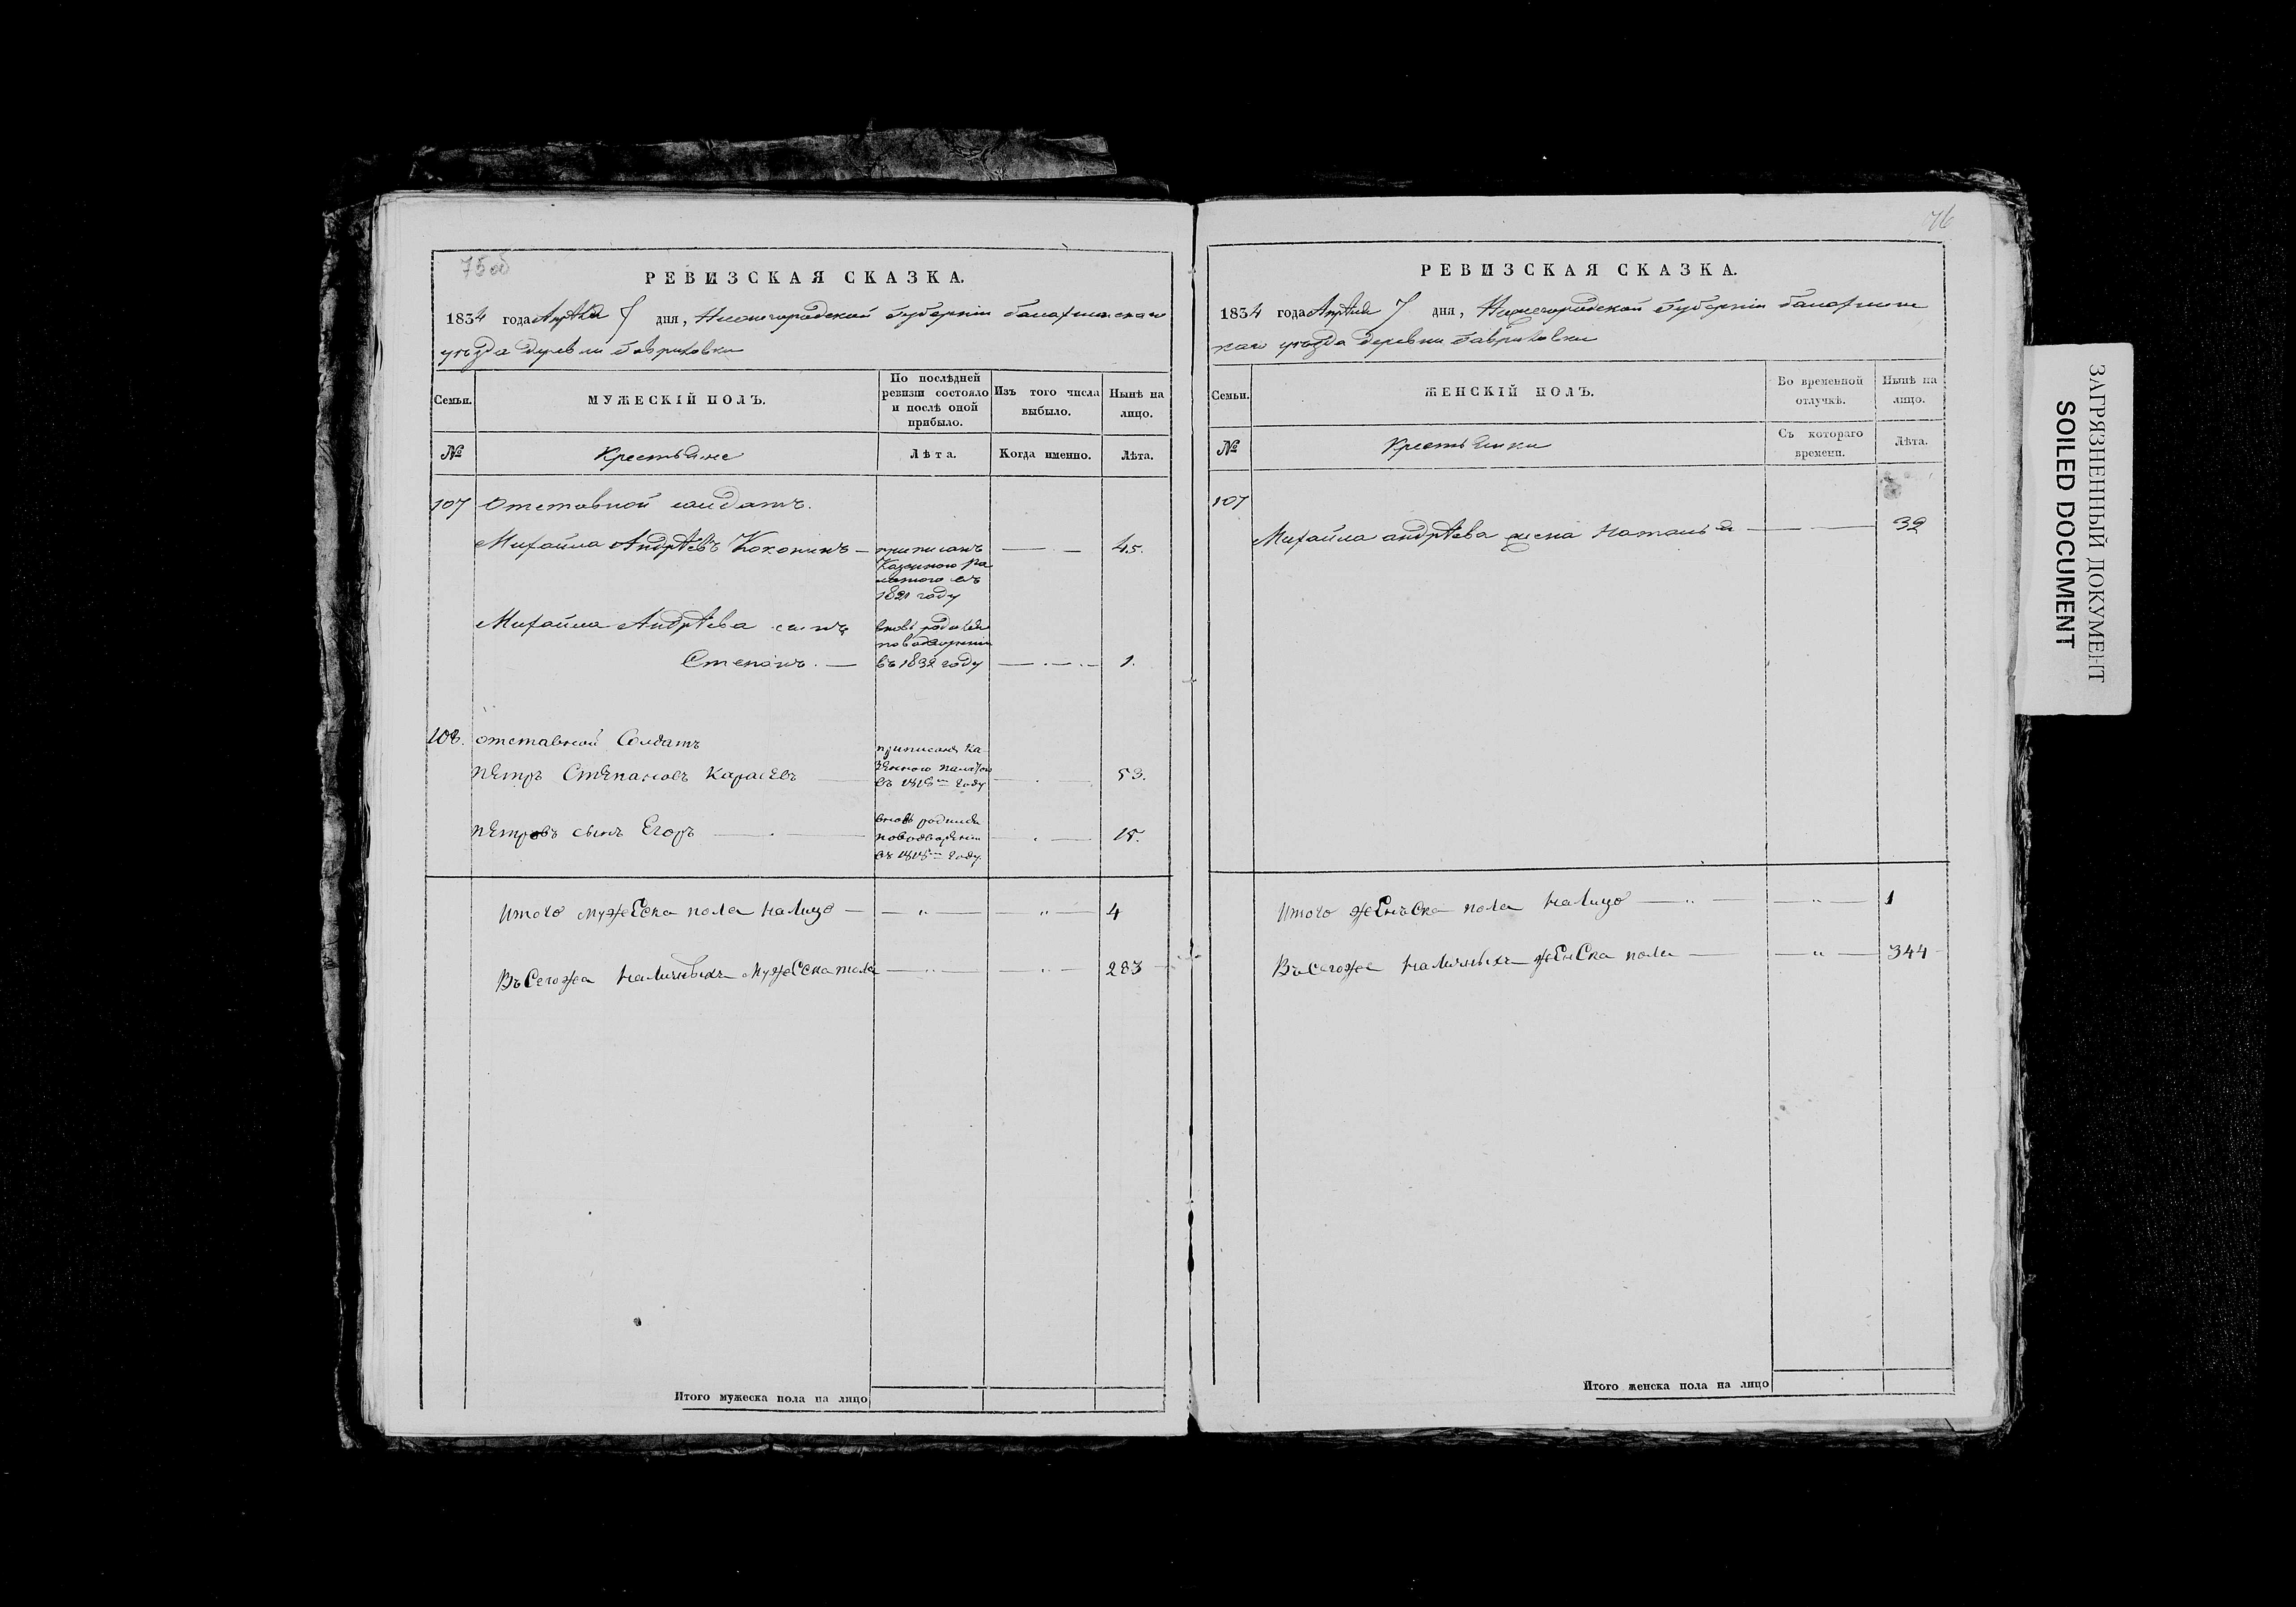 75об
РЕВИЗСКАЯ СКАЗКА.
1834 года Апрѣля 7 дня, Нижегородской губерніи балахнинскаго
уѣзда деревни Гавриловки
Семьи.
МУЖЕСКІЙ ПОЛЪ.
По послѣдней ревизіи состояло и послѣ оной прибыло.
Изъ того числа выбыло.
Нынѣ на лицо.
№
Крестьяне
Лѣта.
Когда именно.
Лѣта.
107 Отставной солдатъ.
Михайла Андрѣевъ Коконинъ — приписанъ — 45.
Казенною па
латою въ
1821 году
Михайла Андрѣева сынъ вновь родился
по водвореніи
Степанъ. — въ 1832 году — 1.
108. отставной Солдатъ
приписанъ Ка
пѣтръ Стѣпановъ Карасѣвъ зѣнною палатою 53.
въ году
пѣтровъ сынъ Егоръ вновь родился
поводварѣніи 18.
году
Итого мужеска пола налицо — " — " — 4
Въсегожа наличныхъ мужеска пола — " — " — 283
Итого мужеска пола на лицо
76
РЕВИЗСКАЯ СКАЗКА.
1834 года Апрѣля 7 дня, Нижегородской губерніи балахнинс
каго уѣзда деревни Гавриловки
Семьи.
ЖЕНСКІЙ ПОЛЪ.
Во временной отлучкѣ.
Нынѣ на лицо.
№
Крестьянки
Съ котораго времени.
Лѣта.
107
Михайла андрѣева жена Наталья — 32
Итого женъска пола налицо — " — " — 1
Въсегоже наличныхъ женска пола — " — 344
Итого женска пола на лицо
ЗАГРЯЗНЕННЫЙ ДОКУМЕНТ
SOILED DOCUMENT